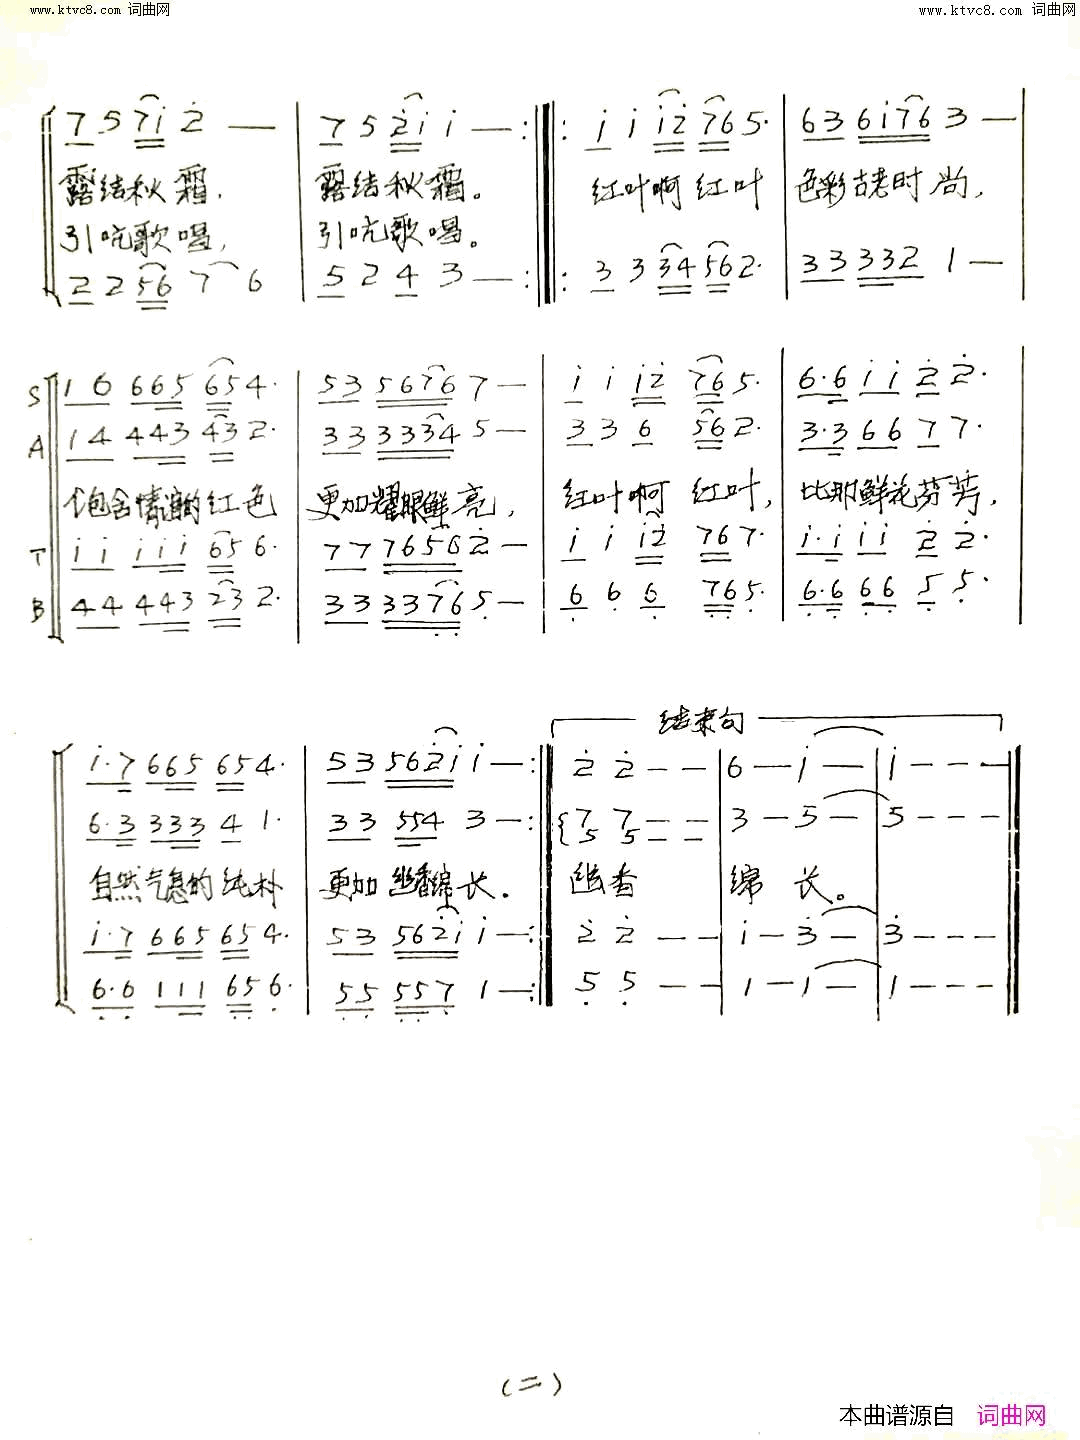 www.ktvc8.com 词曲网 www.ktvc8.com 词曲网
7 5 7i 2̇ — | 7 5 2̇i i — :‖: i i i2̇ 765· | 63 6i76 3 —
露结秋霜, 露结秋霜。 红叶啊 红叶 色彩古老时尚,
引吭歌唱, 引吭歌唱。
2 2 56 7 6 | 5 2 4 3 — :‖: 3 3 34 562· | 33 332 1 —
S 16 665 654· | 53 5676 7 — | i i i2̇ 765· | 6·6 ii 2̇ 2̇·
A 14 443 432· | 33 3334 5 — | 3 3 6 562· | 3·3 66 7 7·
饱含情的红色 更加耀眼鲜亮, 红叶啊 红叶, 比那鲜花芬芳,
T ii iii 656· | 77 7656 2̇ — | i i i2̇ 767· | i·i ii 2̇ 2̇·
B 44 443 232· | 33 3376̣ 5̣ — | 6̣ 6̣ 6̣ 7̣6̣5̣· | 6̣·6̣ 6̣6̣ 5̣ 5̣·
结束句
i·7 665 654· | 53 562̇i i — :‖ 2̇ 2̇ — — | 6 — i — | i — — —
6·3 333 4 1· | 33 554 3 — :‖ {7 7 — — | 3 — 5 — | 5 — — —
5 5 — —
自然气息的纯朴 更加幽香绵长。 幽香 绵 长。
i·7 665 654· | 53 562̇i i — :‖ 2̇ 2̇ — — | i — 3̇ — | 3̇ — — —
6̣·6̣ 111 6̣5̣6̣· | 5̣5̣ 5̣5̣7̣ 1 — :‖ 5̣ 5̣ — — | 1 — 1 — | 1 — — —
(二)
本曲谱源自 词曲网